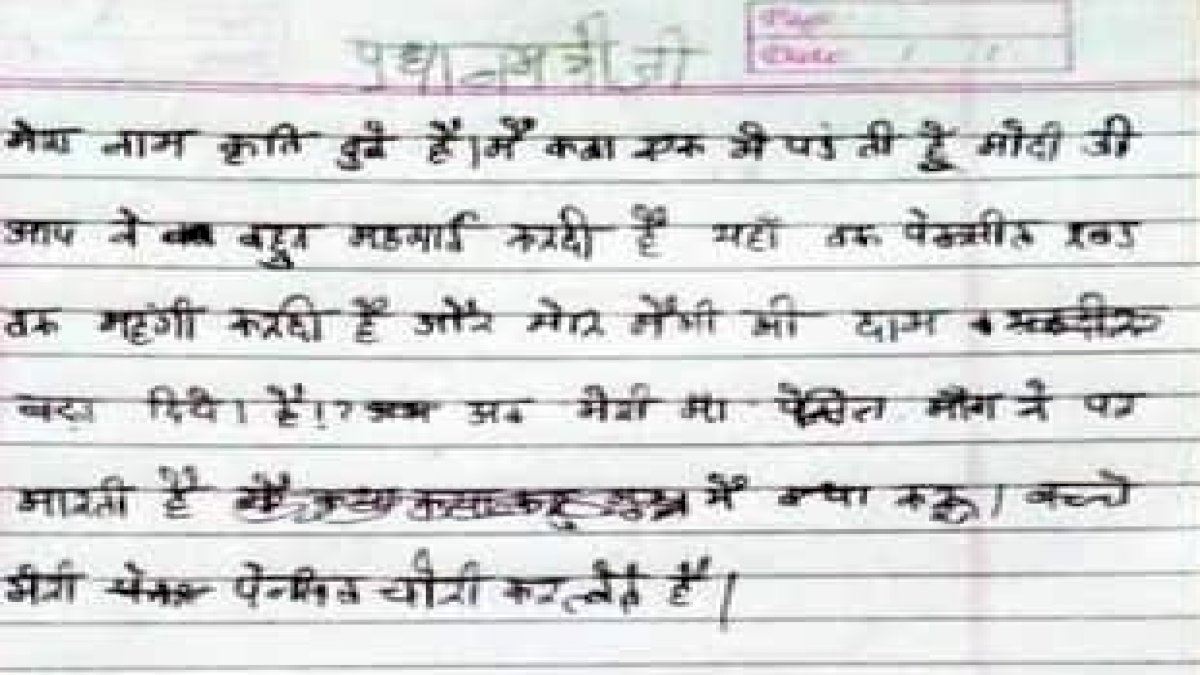 प्रधानमंत्री जी
Page
Date / /
मेरा नाम कृति दुबे है। मैं कक्षा एक मे पडती हूँ मोदी जी
आप ने बहुत महगाई करदी है यहाँ तक पेन्सील रबड
तक महंगी करदी है और मेरि मैगी भी दाम
बढा दिये। है।? अब मेरी मा पेन्सिल माँग ने पर
मारती है मैं क्या करू। बच्चे
मेरी पेन्सिल चोरी कर लेते है।